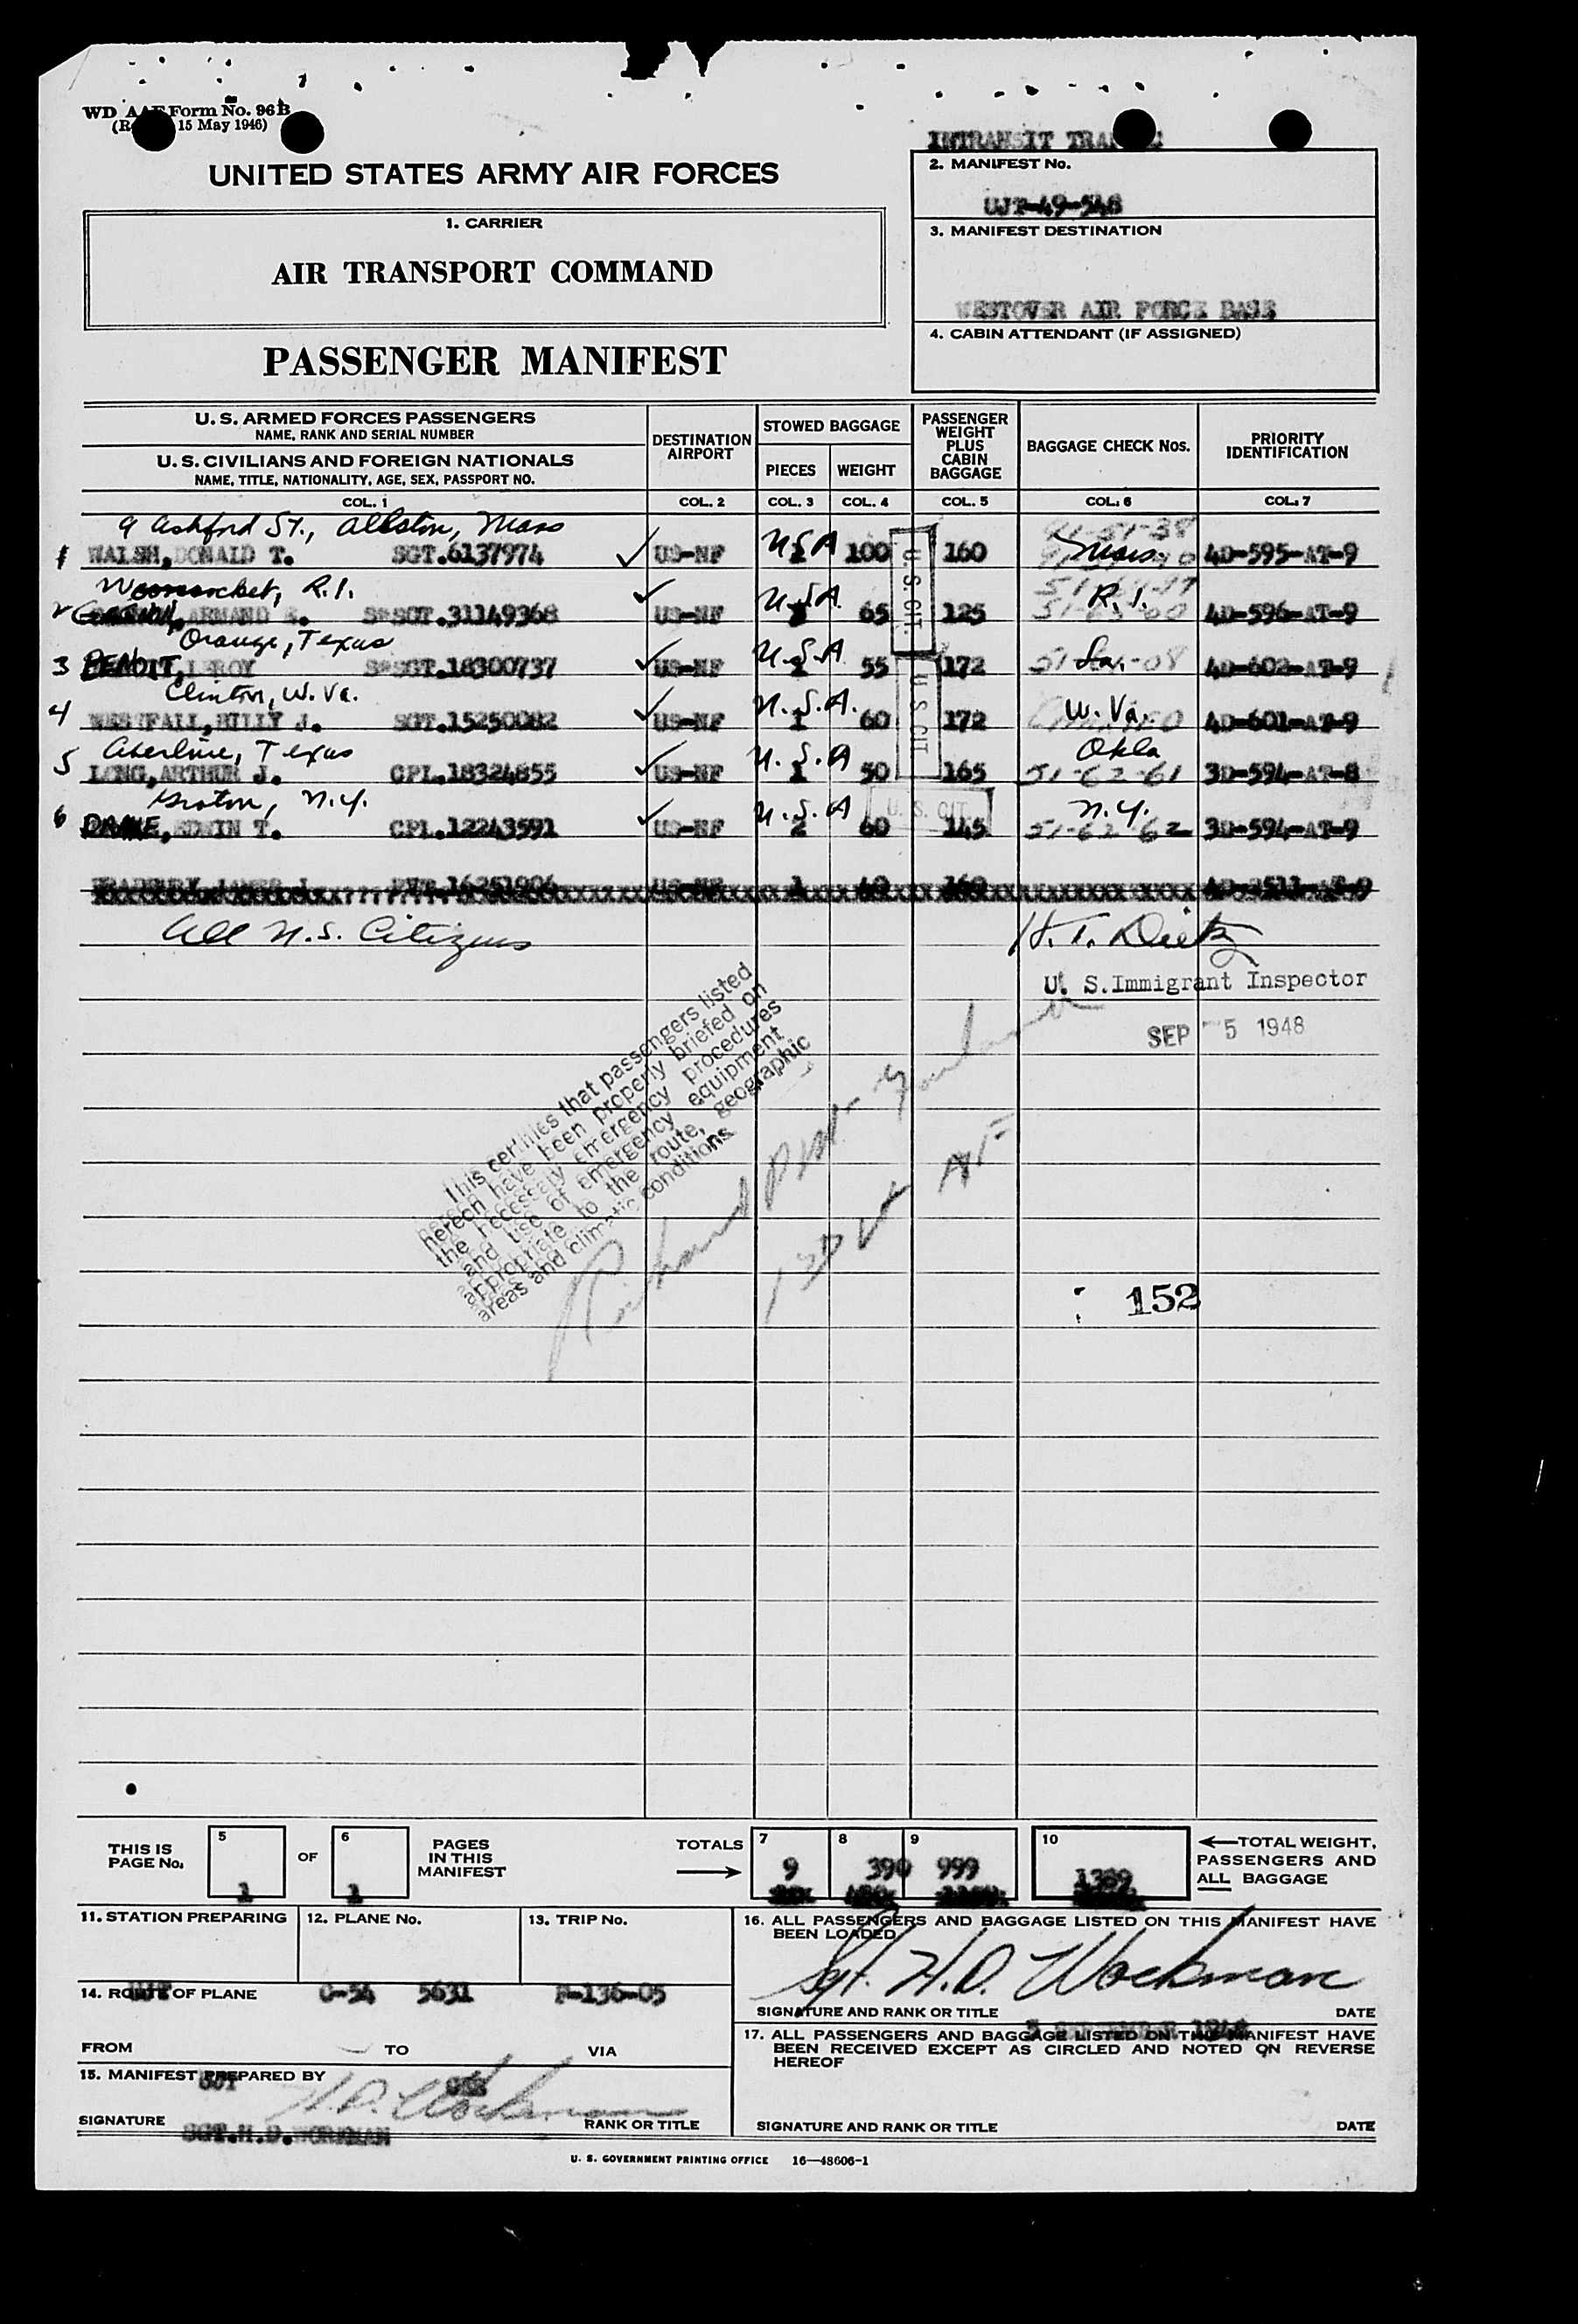 WD AAF Form No. 96B
15 May 1946)
UNITED STATES ARMY AIR FORCES
1. CARRIER
AIR TRANSPORT COMMAND
PASSENGER MANIFEST
INTRANSIT
2. MANIFEST No.
UJT-49-548
3. MANIFEST DESTINATION
WESTOVER AIR FORCE BASE
4. CABIN ATTENDANT (IF ASSIGNED)
U. S. ARMED FORCES PASSENGERS
NAME, RANK AND SERIAL NUMBER
U. S. CIVILIANS AND FOREIGN NATIONALS
NAME, TITLE, NATIONALITY, AGE, SEX, PASSPORT NO.
DESTINATION AIRPORT
STOWED BAGGAGE
PIECES WEIGHT
PASSENGER WEIGHT PLUS CABIN BAGGAGE
BAGGAGE CHECK Nos.
PRIORITY IDENTIFICATION
COL. 1 COL. 2 COL. 3 COL. 4 COL. 5 COL. 6 COL. 7
9 Ashford St., Allston, Mass
1 WALSH, DONALD T. SGT. 6137974 US-NF USA 100 160 Mass. 4D-595-AT-9
Woonsocket, R.I.
2 ARMAND SGT. 31149368 US-NF USA 65 125 R.I. 4D-596-AT-9
Orange, Texas
3 BENOIT, LEROY SGT. 18300737 US-NF USA 1 55 172 4D-602-AT-9
Clinton, W. Va.
4 WESTFALL, BILLY J. SGT. 15250082 US-NF U.S.A. 1 60 172 W. Va. 4D-601-AT-9
Texas
5 LONG, ARTHUR J. CPL. 18324855 US-NF U.S.A 1 50 165 Okla 51-62-61 3D-594-AT-8
Groton, N.Y.
6 EDWIN T. CPL. 12243591 US-NF U.S.A 2 60 145 N.Y. 51-62-62 3D-594-AT-9
U. S. CIT.
U. S. CIT
U. S. CIT.
All U.S. Citizens
H. T. Dietz
U. S. Immigrant Inspector
SEP 5 1948
This certifies that passengers listed
hereon have been properly briefed on
the necessary emergency procedures
and use of emergency equipment
appropriate to the route, geographic
areas and climatic conditions
152
THIS IS PAGE No. 5 1 OF 6 1 PAGES IN THIS MANIFEST
TOTALS 7 9 8 390 9 999 10 1389
TOTAL WEIGHT, PASSENGERS AND ALL BAGGAGE
11. STATION PREPARING 12. PLANE No. 13. TRIP No.
UJT C-54 5631 P-136-05
14. ROUTE OF PLANE
FROM TO VIA
15. MANIFEST PREPARED BY
H.D. Workman
SIGNATURE RANK OR TITLE
SGT. H.D. WORKMAN
16. ALL PASSENGERS AND BAGGAGE LISTED ON THIS MANIFEST HAVE
BEEN LOADED
Sgt. H.D. Workman
SIGNATURE AND RANK OR TITLE DATE
5 SEPTEMBER 1948
17. ALL PASSENGERS AND BAGGAGE LISTED ON THIS MANIFEST HAVE
BEEN RECEIVED EXCEPT AS CIRCLED AND NOTED ON REVERSE
HEREOF
SIGNATURE AND RANK OR TITLE DATE
U. S. GOVERNMENT PRINTING OFFICE 16—48606-1